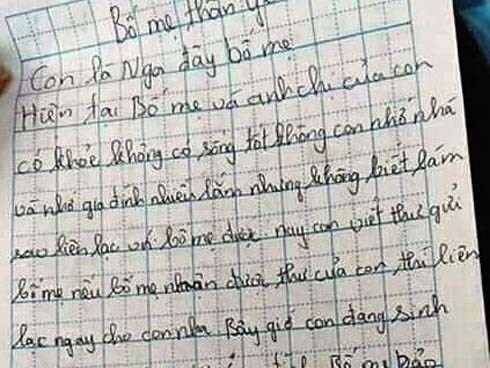 Bố mẹ thân
Con là Nga đây bố mẹ
Hiện tại Bố mẹ và anh chị của con
có khỏe không có sống tốt không con nhớ nhà
và nhớ gia đình nhiều lắm nhưng không biết làm
sao liên lạc với bố mẹ được nay con viết thư gửi
bố mẹ nếu bố mẹ nhận được thư của con, thì liên
lạc ngay cho con nha Bây giờ con đang sinh
Bố mẹ bảo